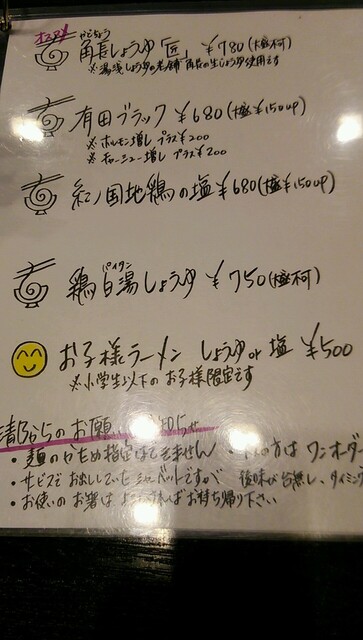 オススメ
かどちょう
角長しょうゆ「匠」 ¥780(大盛不可)
※湯浅しょうゆの老舗 角長の生しょうゆ使用です
有田ブラック ¥680(大盛¥150up)
※ホルモン増し プラス¥200
※チャーシュー増し プラス¥200
紀ノ国地鶏の塩 ¥680(大盛¥150up)
パイタン
鶏白湯しょうゆ ¥750(大盛不可)
お子様ラーメン しょうゆor塩 ¥500
※小学生以下のお子様限定です
からのお願い
・麺のかため指定はできません ・ の方はワンオーダー
・サービスでお出ししていたシャーベットですが 後味が台無し、タイミング
・お使いのお箸は よろしければお持ち帰り下さい